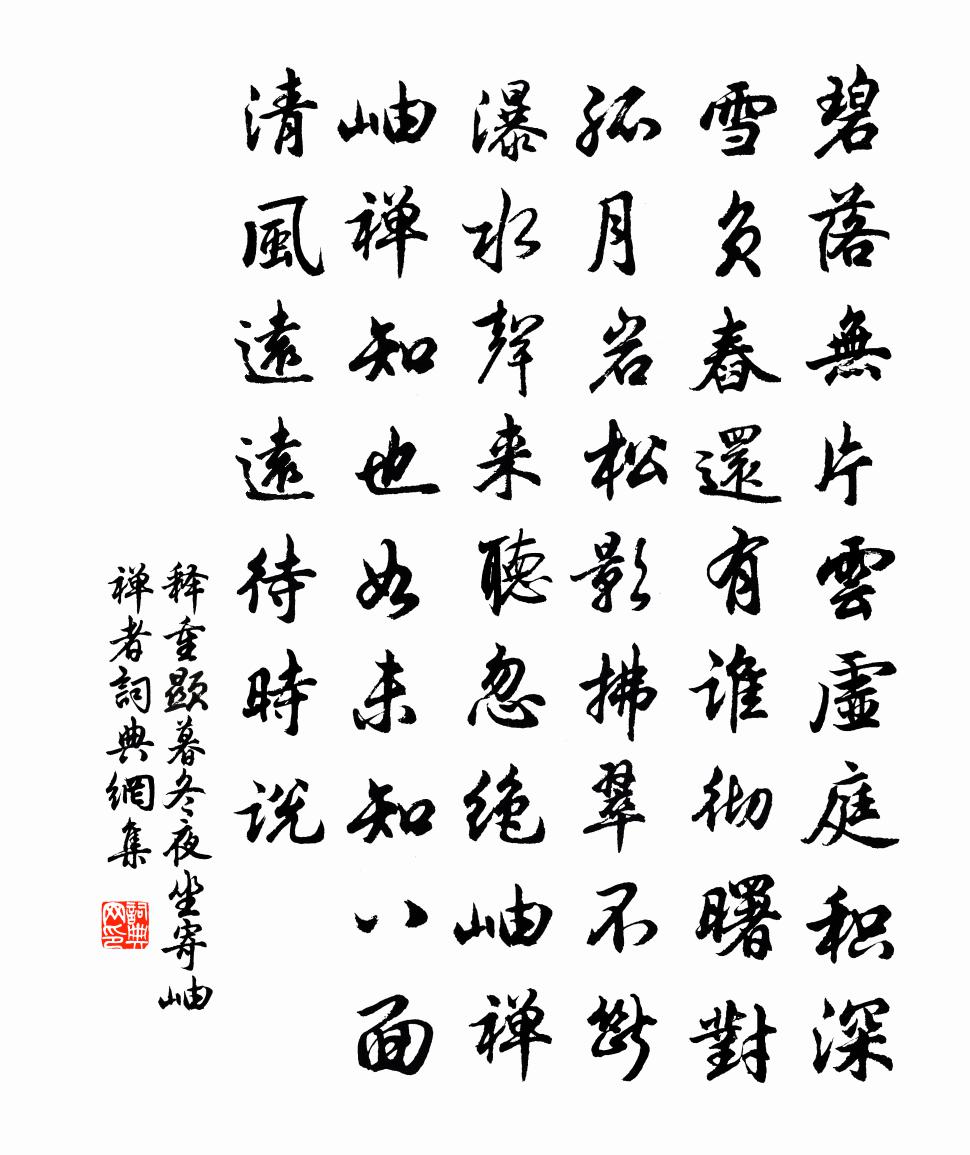 碧落無片雲虛庭积深
雪負春還有谁彻曙對
孤月岩松影拂翠不斷
瀑水聲来聽忽绝岫禅
岫禅知也如未知八面
清風遠遠待時说
释重顯暮冬夜坐寄岫
禅者詞典網集
詞典网印